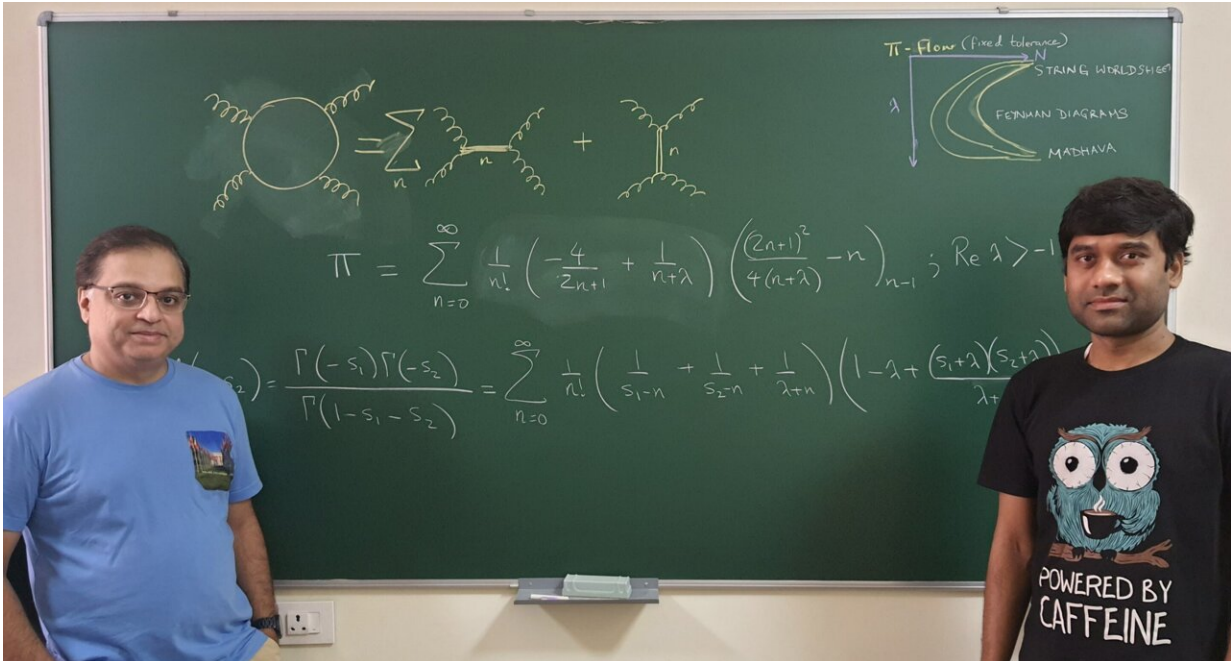 π-flow (fixed tolerance)
N
STRING WORLDSHEET
λ
FEYNMAN DIAGRAMS
MADHAVA
= Σ n n + n
π = Σ_{n=0}^{∞} 1/n! (-4/(2n+1) + 1/(n+λ)) ((2n+1)²/(4(n+λ)) - n)_{n-1} ; Re λ > -1
s₂) = Γ(-s₁)Γ(-s₂)/Γ(1-s₁-s₂) = Σ_{n=0}^{∞} 1/n! (1/(s₁-n) + 1/(s₂-n) + 1/(λ+n)) (1-λ+ (s₁+λ)(s₂+λ)/λ+
POWERED BY
CAFFEINE